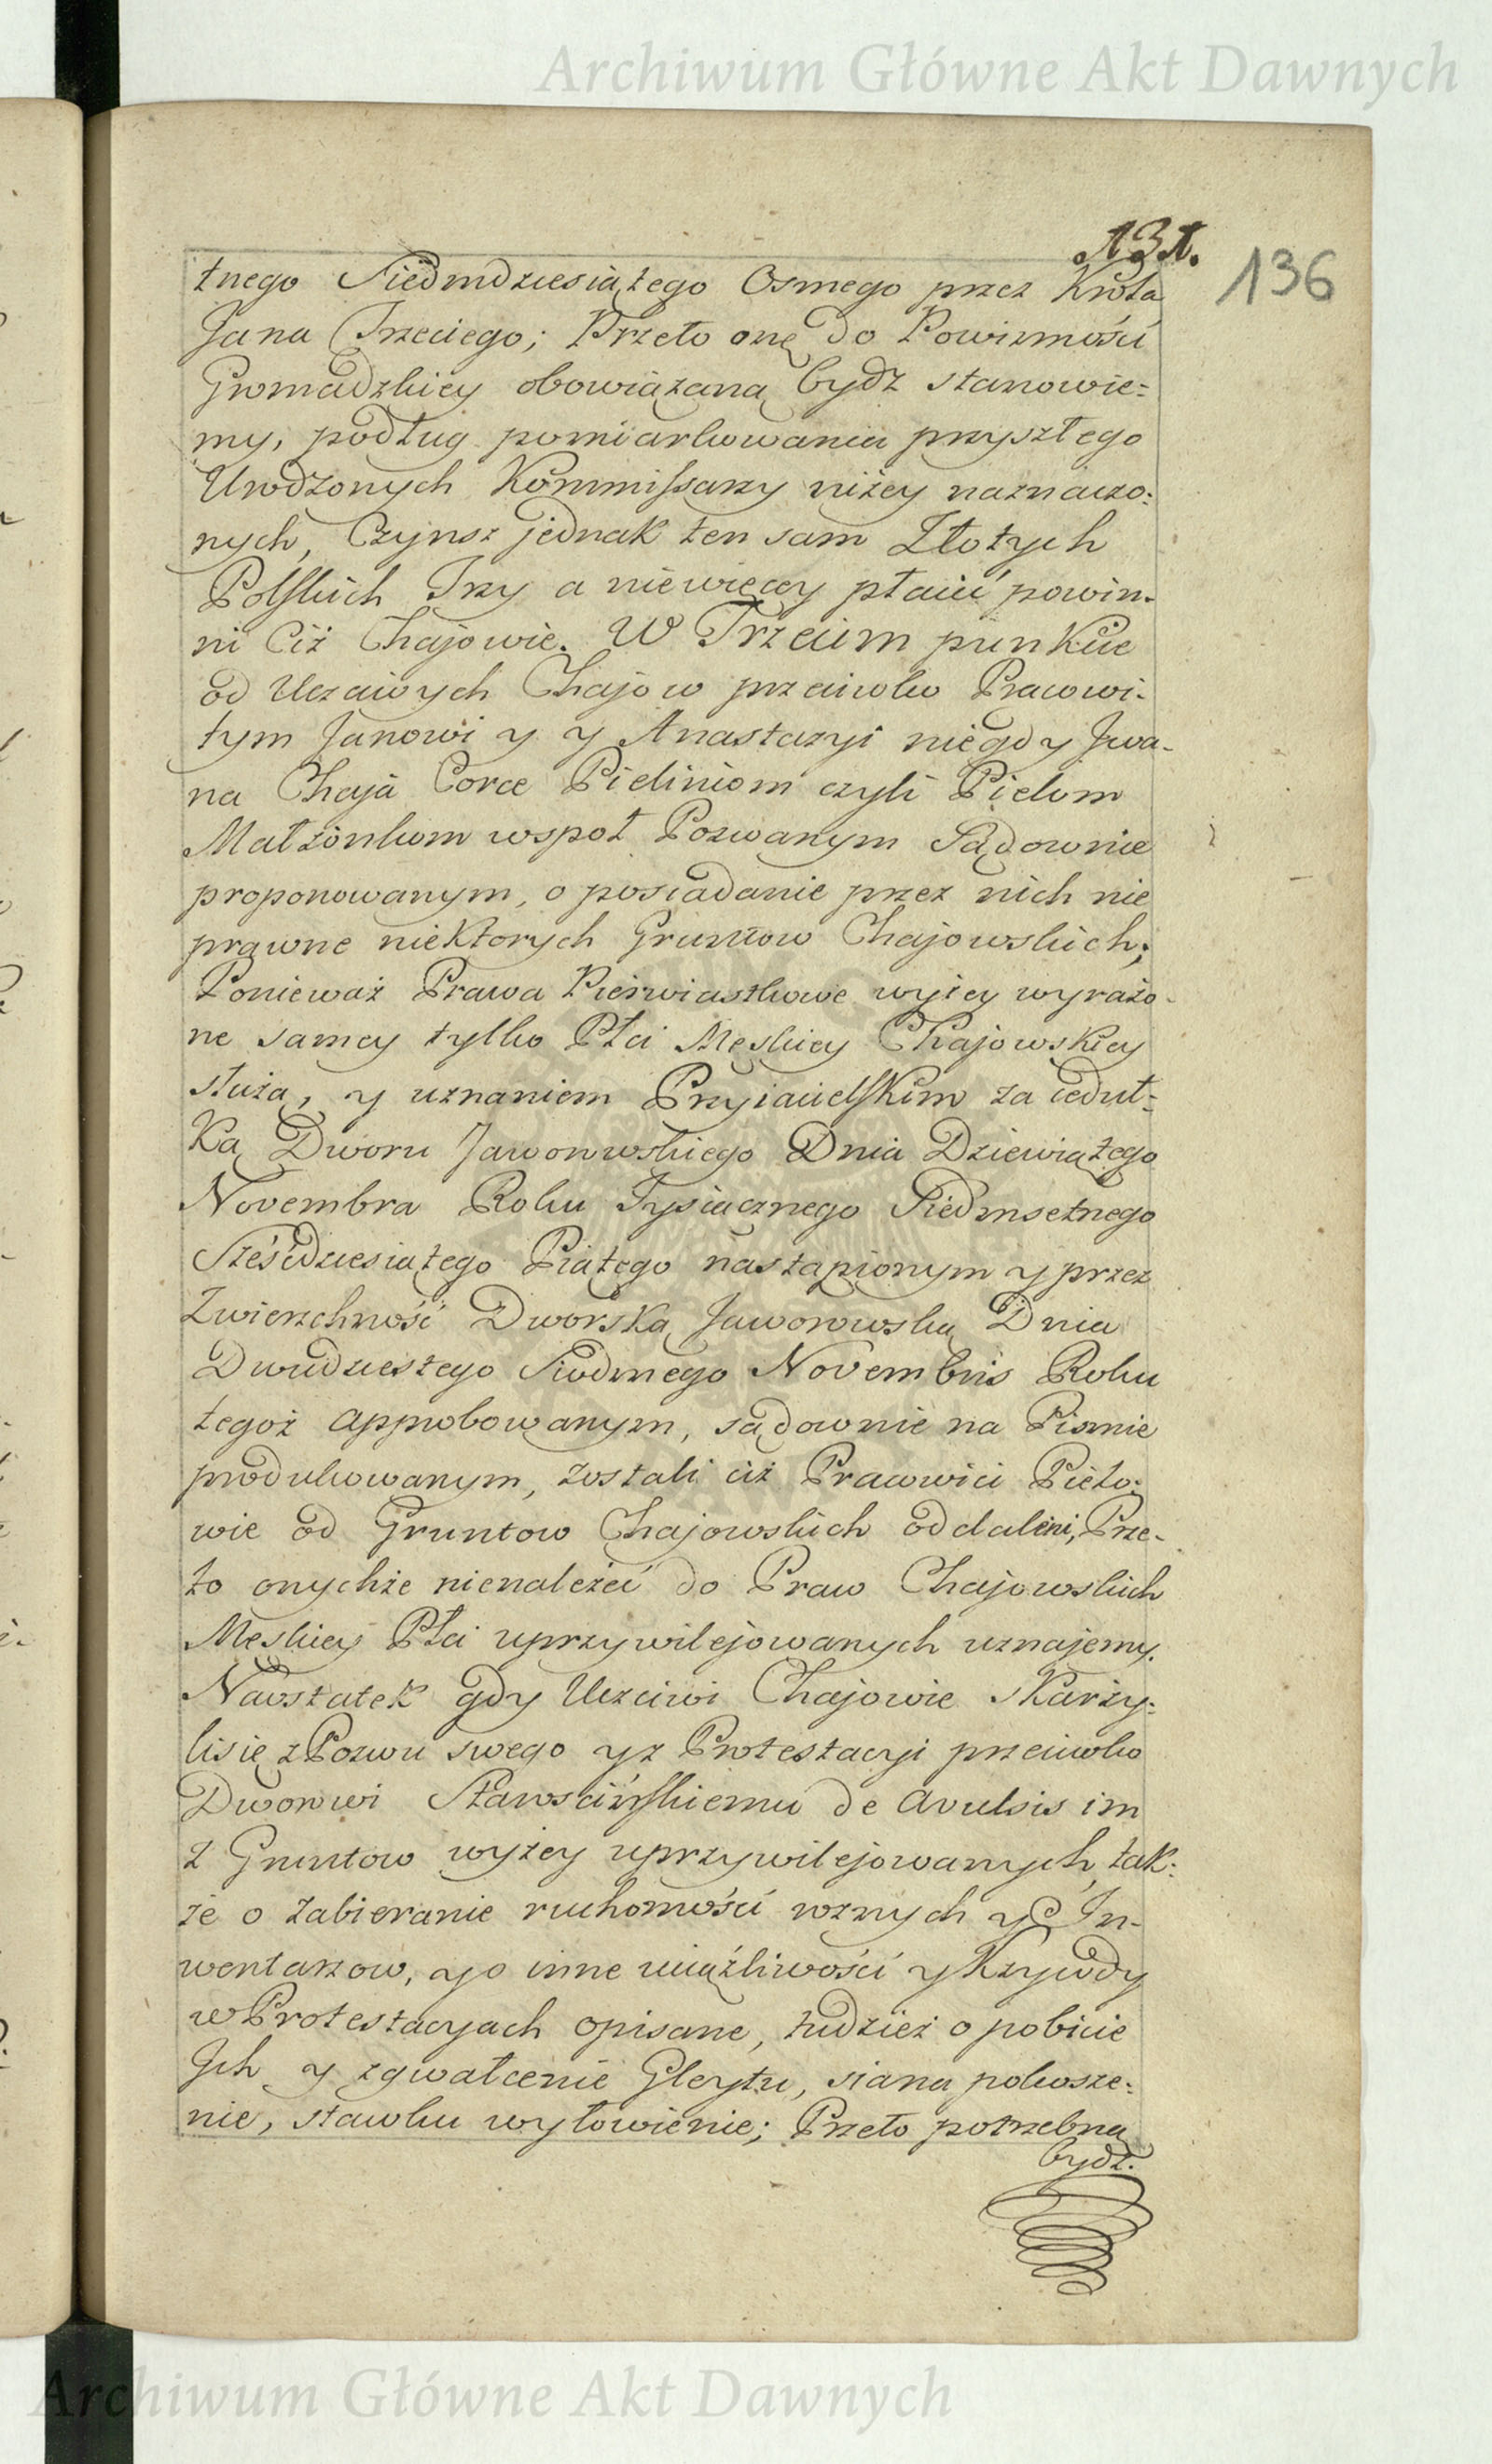 Archiwum Główne Akt Dawnych
131.
136
tnego Siedmdziesiątego Osmego przez Krola
Jana Trzeciego; Przeto onę do Powinności
Gromadzkiey obowiązaną bydz stanowie:
my, podług pomiarkowania przyszłego
Urodzonych Kommissarzy niżey naznaczo:
nych, Czynsz jednak ten sam Złotych
Polskich Trzy a niewięcey płacić powin-
ni Ciż Chajowie. W Trzecim punkcie
od Uczciwych Chajow przeciwko Pracowi-
tym Janowi y y Anastazyi niegdy Jwa-
na Chaja Corce Pieliniom czyli Pielom
Małżonkom wspoł Pozwanym Sądownie
proponowanym, o posiadanie przez nich nie
prawne niektorych Gruntow Chajowskich;
Ponieważ Prawa Pierwiastkowe wyżey wyrażo-
ne samey tylko Płci Męskiey Chajowskiey
służą, y uznaniem Przyiacielskim za ceduł:
ką Dworu Jaworowskiego Dnia Dziewiątego
Novembra Roku Tysiacznego Siedmsetnego
Sześcdziesiątego Piątego nastąpionym y przez
Zwierzchność Dworską Jaworowską Dnia
Dwudziestego Siodmego Novembris Roku
tegoż approbowanym, sądownie na Pismie
produkowanym, zostali ciż Pracowici Pielo:
wie od Gruntow Chajowskich oddaleni, Prze-
to onychże nienależeć do Praw Chajowskich
Męskiey Płci uprzywilejowanych uznajemy.
Naostatek gdy Uczciwi Chajowie skarży:
lisię z Pozwu swego yz Protestacyi przeciwko
Dworowi Starościńskiemu de avulsis im
z Gruntow wyżey uprzywilejowanych, tak:
że o zabieranie ruchomości roznych y In-
wentarzow, yo inne uciążliwości y Krzywdy
w Protestacyach opisane, tudzież o pobicie
Jch y zgwałcenie Gleytu, siana pokosze:
nie, stawku wyłowienie; Przeto potrzebną
bydź.
Archiwum Główne Akt Dawnych